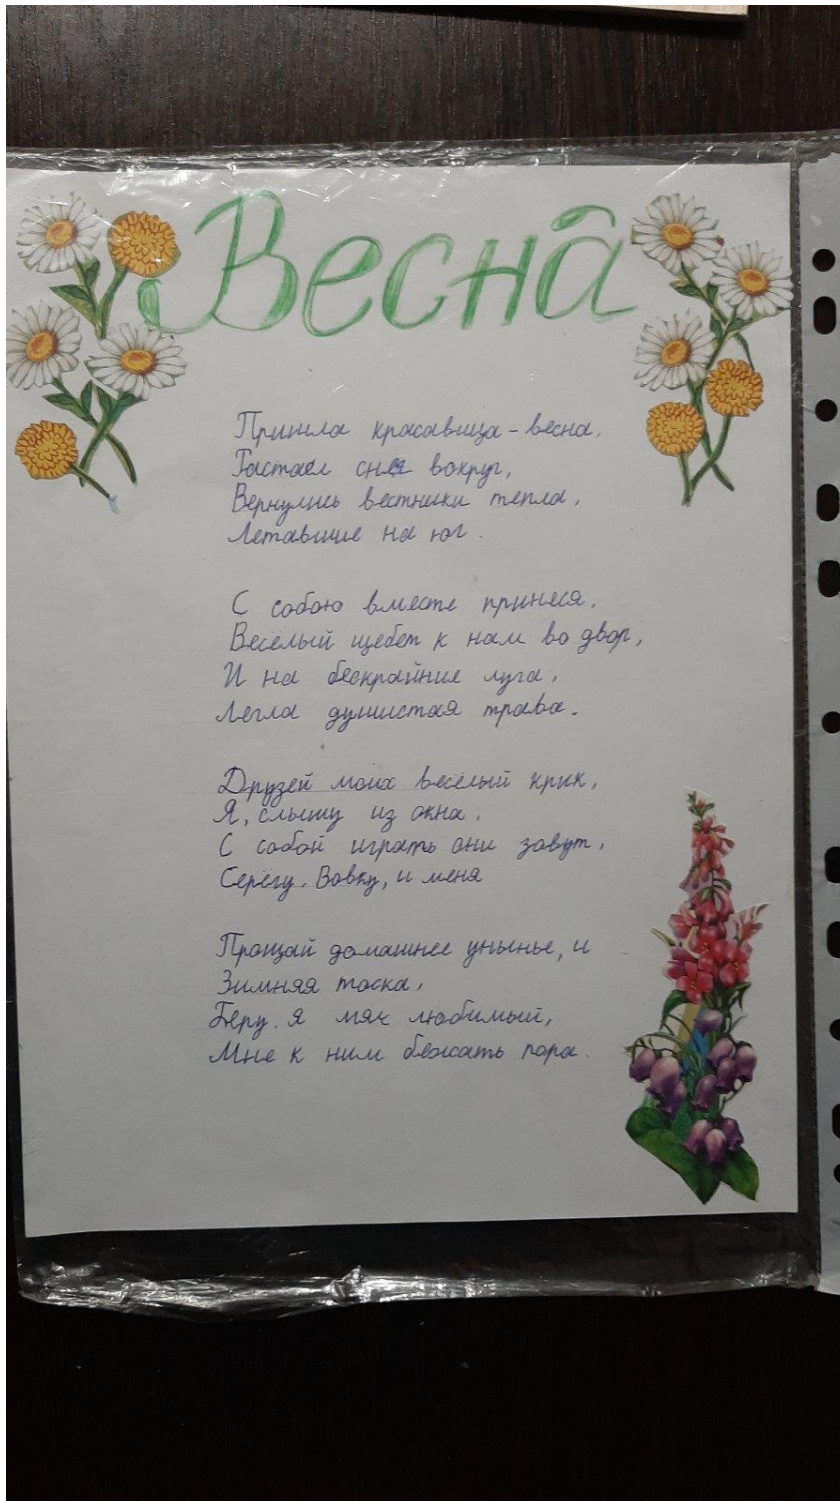 Весна
Пришла красавица - весна,
Растаял снег вокруг,
Вернулись вестники тепла,
Летавшие на юг.
С собою вместе принеся,
Весёлый щебет к нам во двор,
И на бескрайние луга,
Легла душистая трава.
Друзей моих весёлый крик,
Я, слышу из окна,
С собой играть они зовут,
Серёгу, Вовку, и меня
Прощай домашнее унынье, и
Зимняя тоска,
Беру, я мяч любимый,
Мне к ним бежать пора.